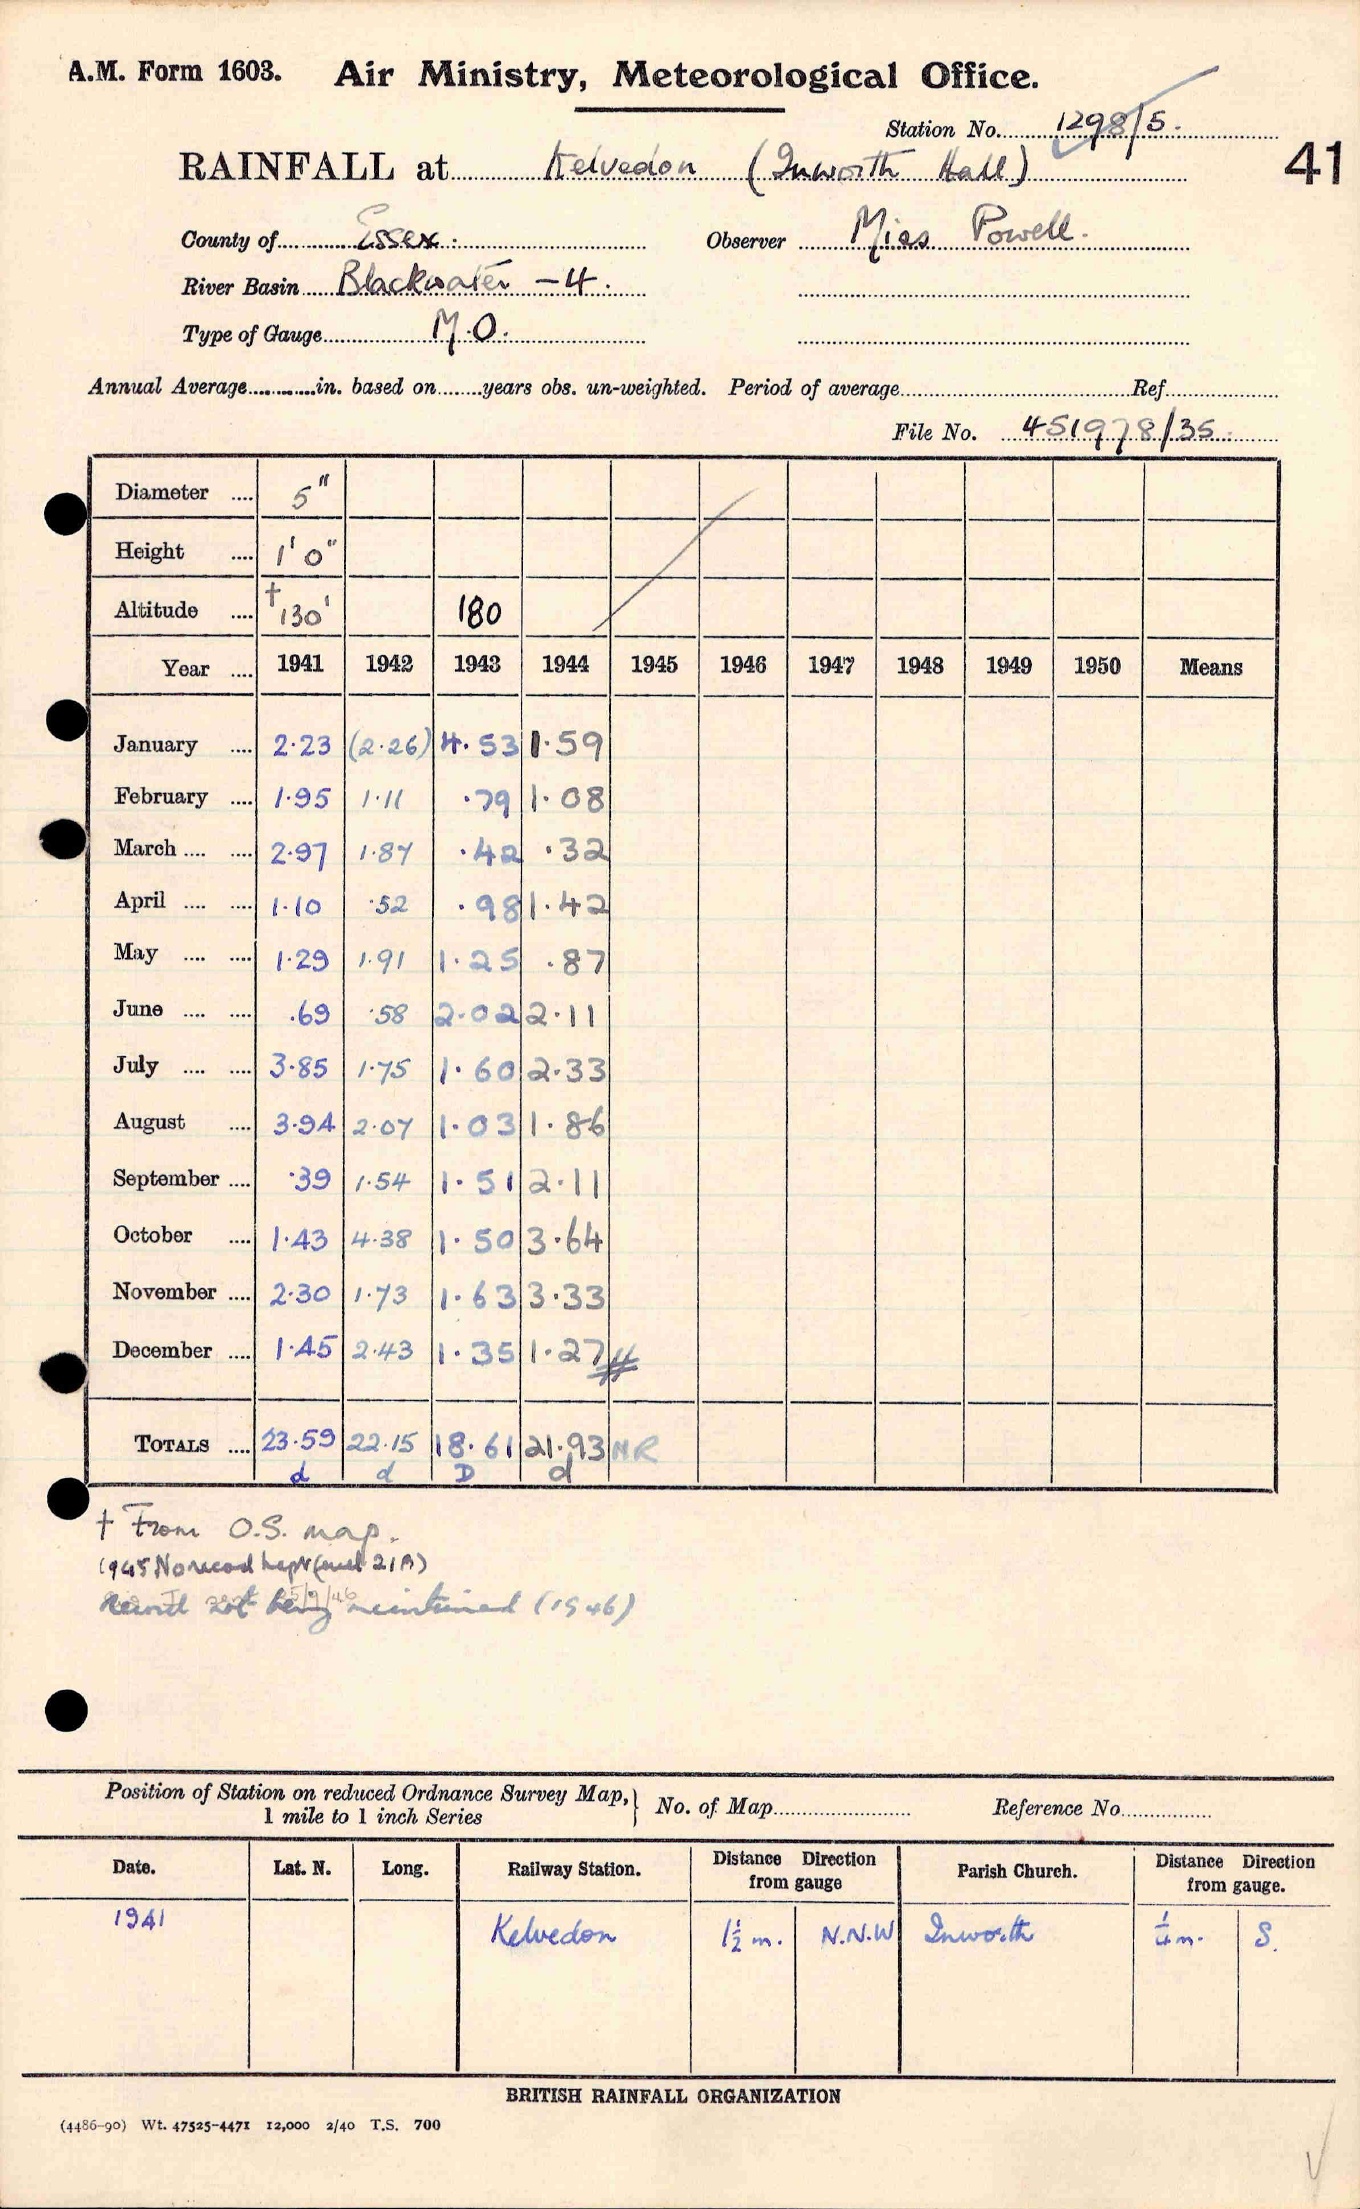 A.M. Form 1603. Air Ministry, Meteorological Office.
Station No. 1298/5.
RAINFALL at Kelvedon (Inworth Hall)
41
County of Essex. Observer Miss Powell.
River Basin Blackwater - 4.
Type of Gauge M.O.
Annual Average in. based on years obs. un-weighted. Period of average Ref
File No. 451978/35
Diameter 5"
Height 1' 0"
Altitude † 130' 180
Year 1941 1942 1943 1944 1945 1946 1947 1948 1949 1950 Means
January 2·23 (2·26) 4·53 1·59
February 1·95 1·11 ·79 1·08
March 2·97 1·87 ·42 ·32
April 1·10 ·52 ·98 1·42
May 1·29 1·91 1·25 ·87
June ·69 ·58 2·02 2·11
July 3·85 1·75 1·60 2·33
August 3·94 2·07 1·03 1·86
September ·39 1·54 1·51 2·11
October 1·43 4·38 1·50 3·64
November 2·30 1·73 1·63 3·33
December 1·45 2·43 1·35 1·27
TOTALS 23·59 22·15 18·61 21·93 NR
d d D d
† From O.S. map.
1945 No record kept
Record not being maintained (1946)
Position of Station on reduced Ordnance Survey Map, 1 mile to 1 inch Series } No. of Map Reference No
Date. Lat. N. Long. Railway Station. Distance Direction from gauge Parish Church. Distance Direction from gauge.
1941 Kelvedon 1½ m. N.N.W Inworth ¼ m. S.
BRITISH RAINFALL ORGANIZATION
(4486-90) Wt. 47525-4471 12,000 2/40 T.S. 700